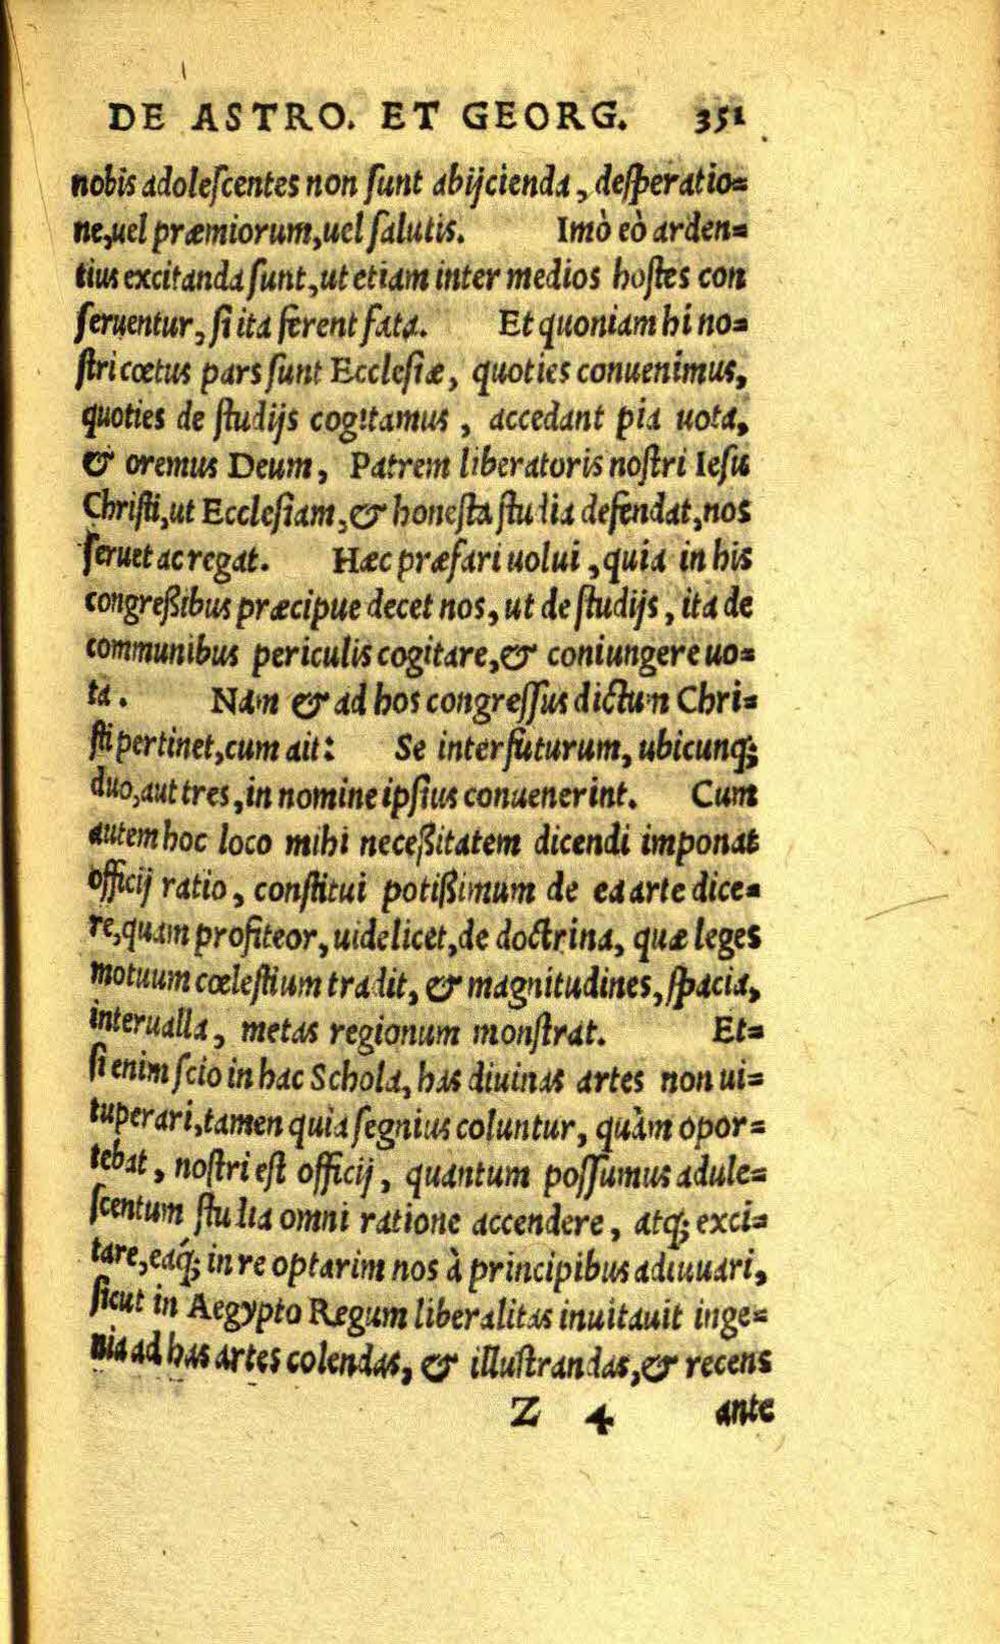 DE ASTRO. ET GEORG. 351
nobis adoleſcentes non ſunt abijcienda, deſperatio=
ne, uel præmiorum, uel ſalutis. Imò eò arden=
tius excitanda ſunt, ut etiam inter medios hoſtes con
ſeruentur, ſi ita ferent fata. Et quoniam hi no=
ſtri cœtus pars ſunt Eccleſiæ, quoties conuenimus,
quoties de ſtudijs cogitamus, accedant pia uota,
& oremus Deum, Patrem liberatoris noſtri Ieſu
Chriſti, ut Eccleſiam, & honeſta ſtudia defendat, nos
ſeruet ac regat. Hæc præfari uolui, quia in his
congreßibus præcipue decet nos, ut de ſtudijs, ita de
communibus periculis cogitare, & coniungere uo=
ta. Nam & ad hos congreſſus dictum Chri=
ſti pertinet, cum ait: Se interfuturum, ubicunq;
duo, aut tres, in nomine ipſius conuenerint. Cum
autem hoc loco mihi neceßitatem dicendi imponat
officij ratio, conſtitui potißimum de ea arte dice=
re, quam profiteor, uidelicet, de doctrina, quæ leges
motuum cœleſtium tradit, & magnitudines, ſpacia,
interualla, metas regionum monſtrat. Et=
ſi enim ſcio in hac Schola, has diuinas artes non ui=
tuperari, tamen quia ſegnius coluntur, quàm opor=
tebat, noſtri eſt officij, quantum poſſumus adule=
ſcentum ſtudia omni ratione accendere, atq; exci=
tare, eaq́; in re optarim nos à principibus adiuuari,
ſicut in Aegypto Regum liberalitas inuitauit inge=
nia ad has artes colendas, & illuſtrandas, & recens
Z 4 ante